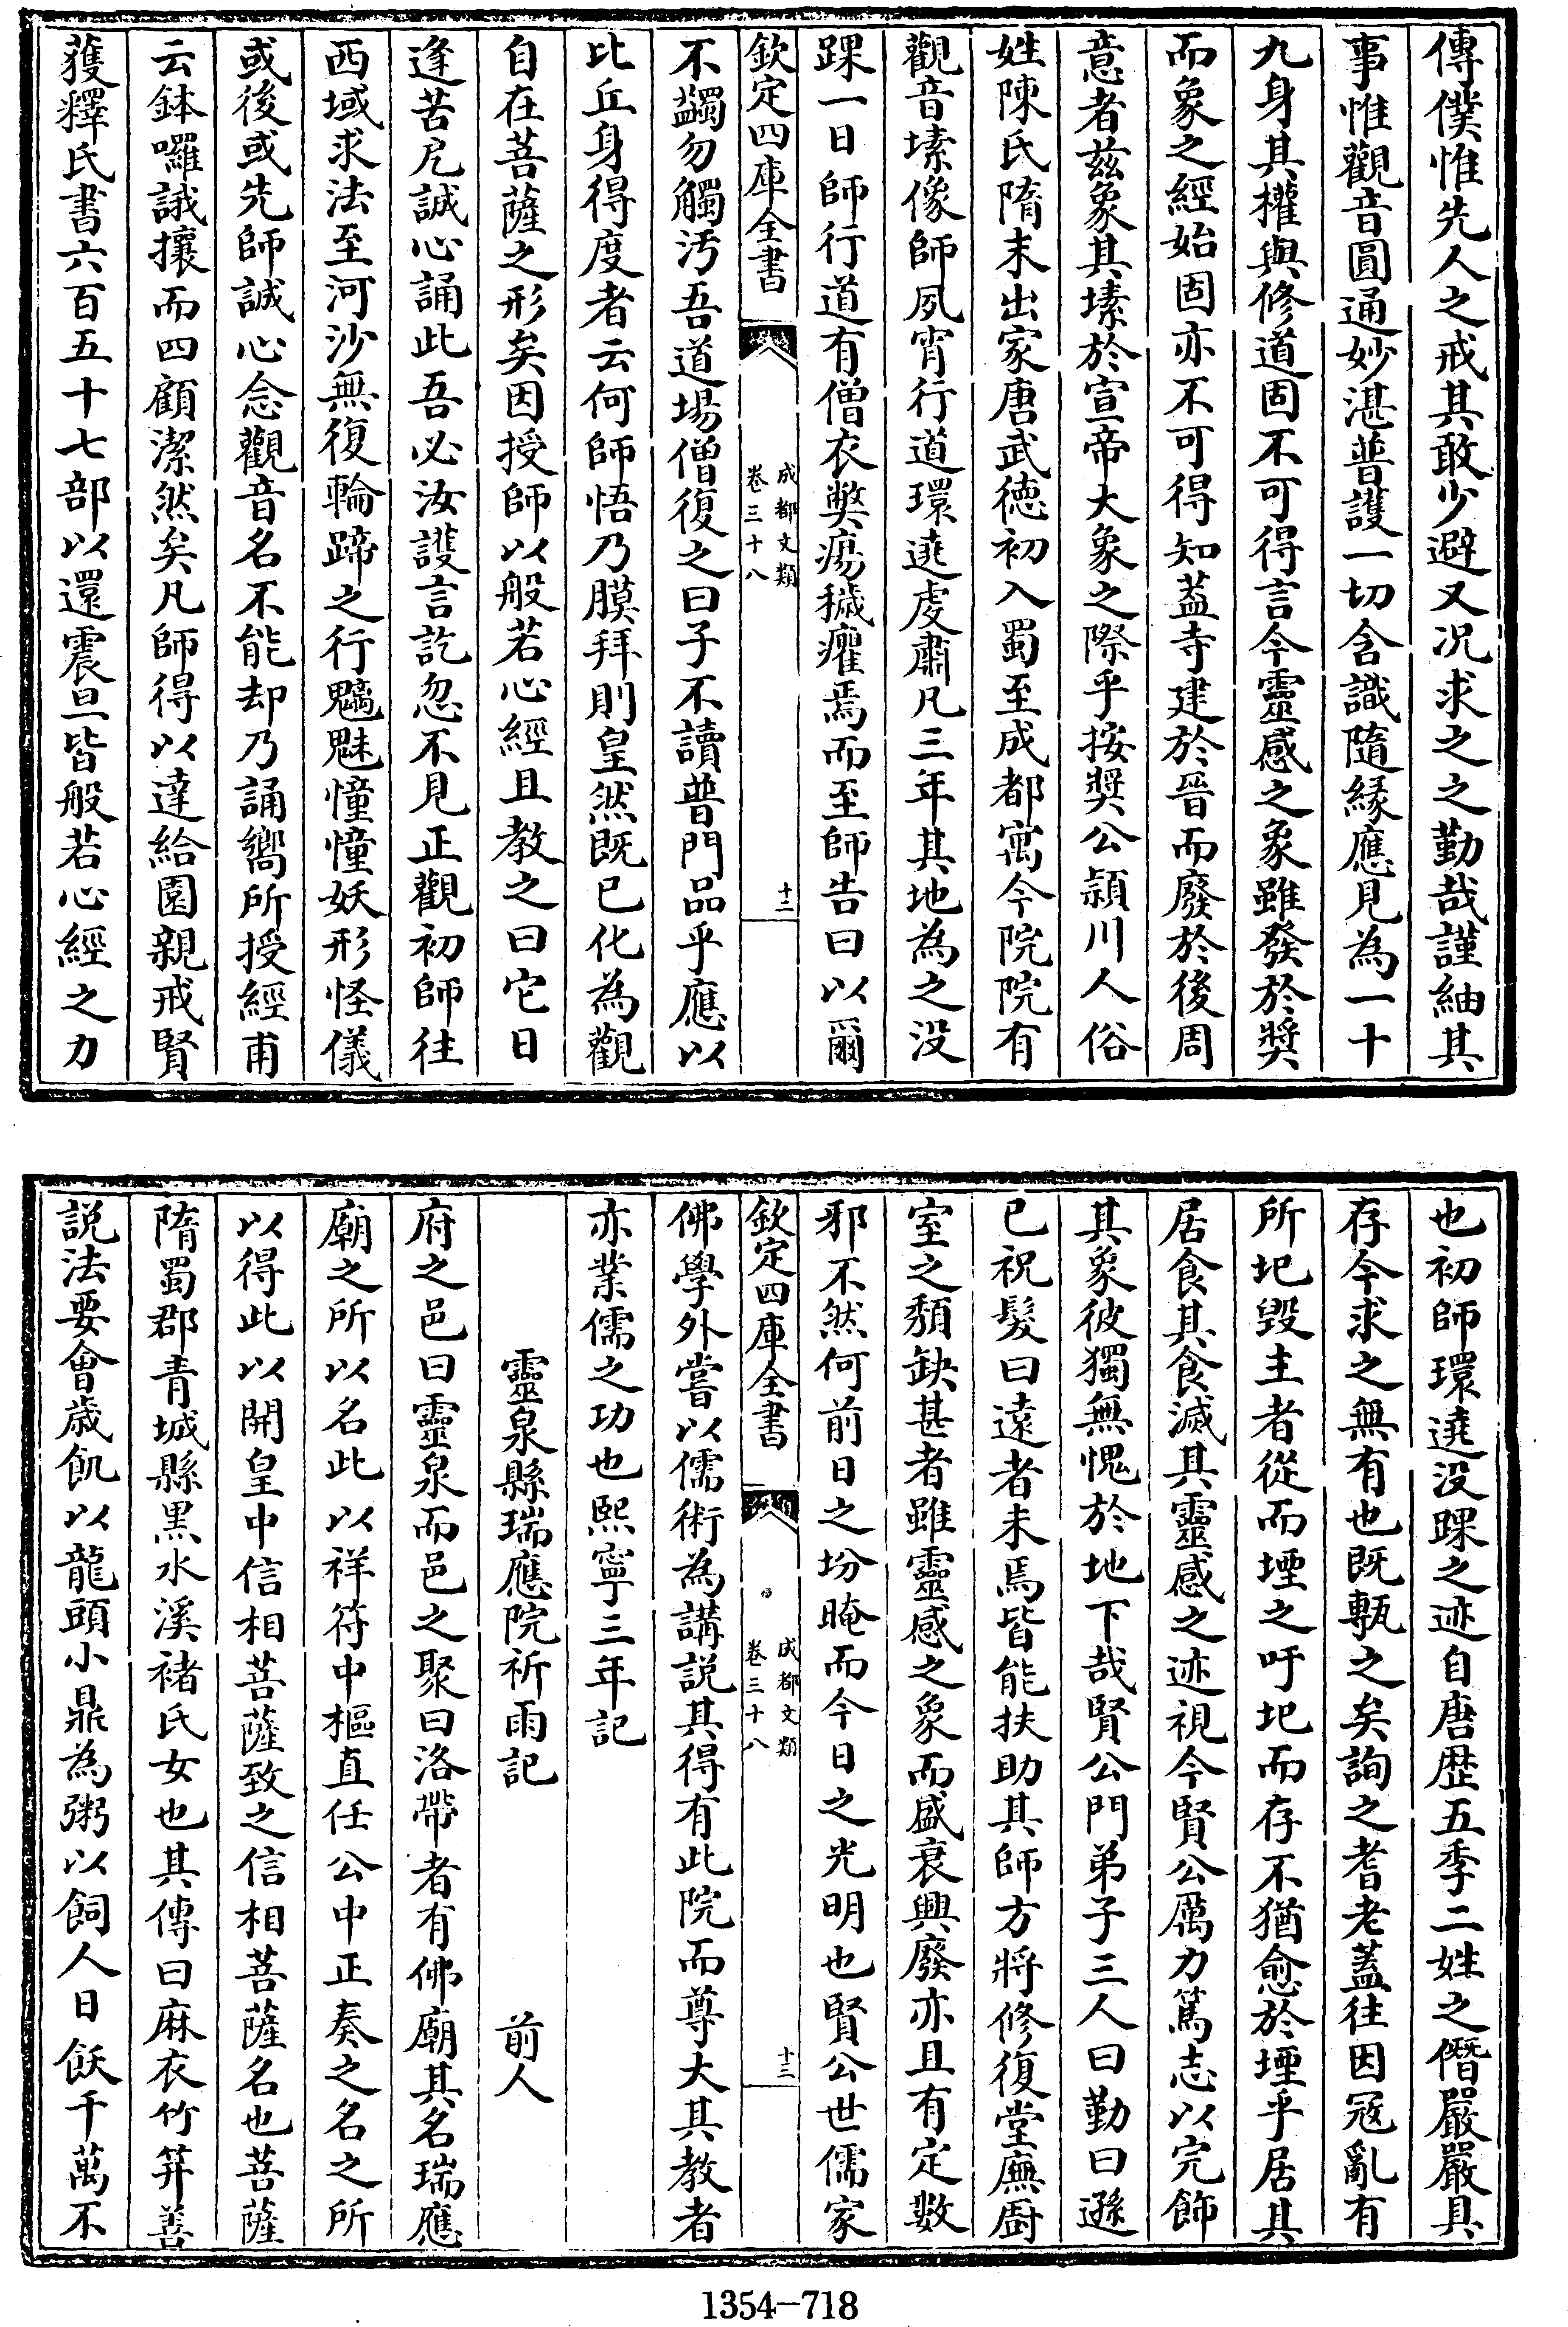 傳僕惟先人之戒其敢少避又况求之之勤哉謹紬其
事惟觀音圓通妙湛普護一切含識隨縁應見為一十
九身其權輿修道固不可得言今靈感之象雖發於奬
而象之經始固亦不可得知葢寺建於晉而廢於後周
意者兹象其塐於宣帝大象之際乎按奬公頴川人俗
姓陳氏隋末出家唐武徳初入蜀至成都寓今院院有
觀音塐像師夙宵行道環遶䖍肅凡三年其地為之没
踝一日師行道有僧衣弊瘍穢癯焉而至師告曰以爾
欽定四庫全書
成都文類
卷三十八
十二
不蠲勿觸汚吾道場僧復之曰子不讀普門品乎應以
比丘身得度者云何師悟乃膜拜則皇然既已化為觀
自在菩薩之形矣因授師以般若心經且教之曰它日
逢苦戹誠心誦此吾必汝護言訖忽不見正觀初師往
西域求法至河沙無復輪蹄之行魑魅憧憧妖形怪儀
或後或先師誠心念觀音名不能却乃誦嚮所授經甫
云鉢囉誐攘而四顧潔然矣凡師得以達給園親戒賢
獲釋氏書六百五十七部以還震旦皆般若心經之力
也初師環遶没踝之迹自唐歴五季二姓之僭嚴嚴具
存今求之無有也既㼾之矣詢之耆老蓋往因宼亂有
所圯毀主者從而堙之吁圯而存不猶愈於堙乎居其
居食其食滅其靈感之迹視今賢公厲力篤志以完飾
其象彼獨無愧於地下哉賢公門弟子三人曰勤曰遜
已祝髮曰遠者未焉皆能扶助其師方將修復堂廡厨
室之頽缺甚者雖靈感之象而盛衰興廢亦且有定數
邪不然何前日之坋晻而今日之光明也賢公世儒家
欽定四庫全書
成都文類
卷三十八
十三
佛學外嘗以儒術為講説其得有此院而尊大其教者
亦業儒之功也熙寧三年記
靈泉縣瑞應院祈雨記 前人
府之邑曰靈泉而邑之聚曰洛帶者有佛廟其名瑞應
廟之所以名此以祥符中樞直任公中正奏之名之所
以得此以開皇中信相菩薩致之信相菩薩名也菩薩
隋蜀郡青城縣黒水溪褚氏女也其傳曰麻衣竹笄善
説法要會歳飢以龍頭小鼎為粥以飼人日飫千萬不
1354—718